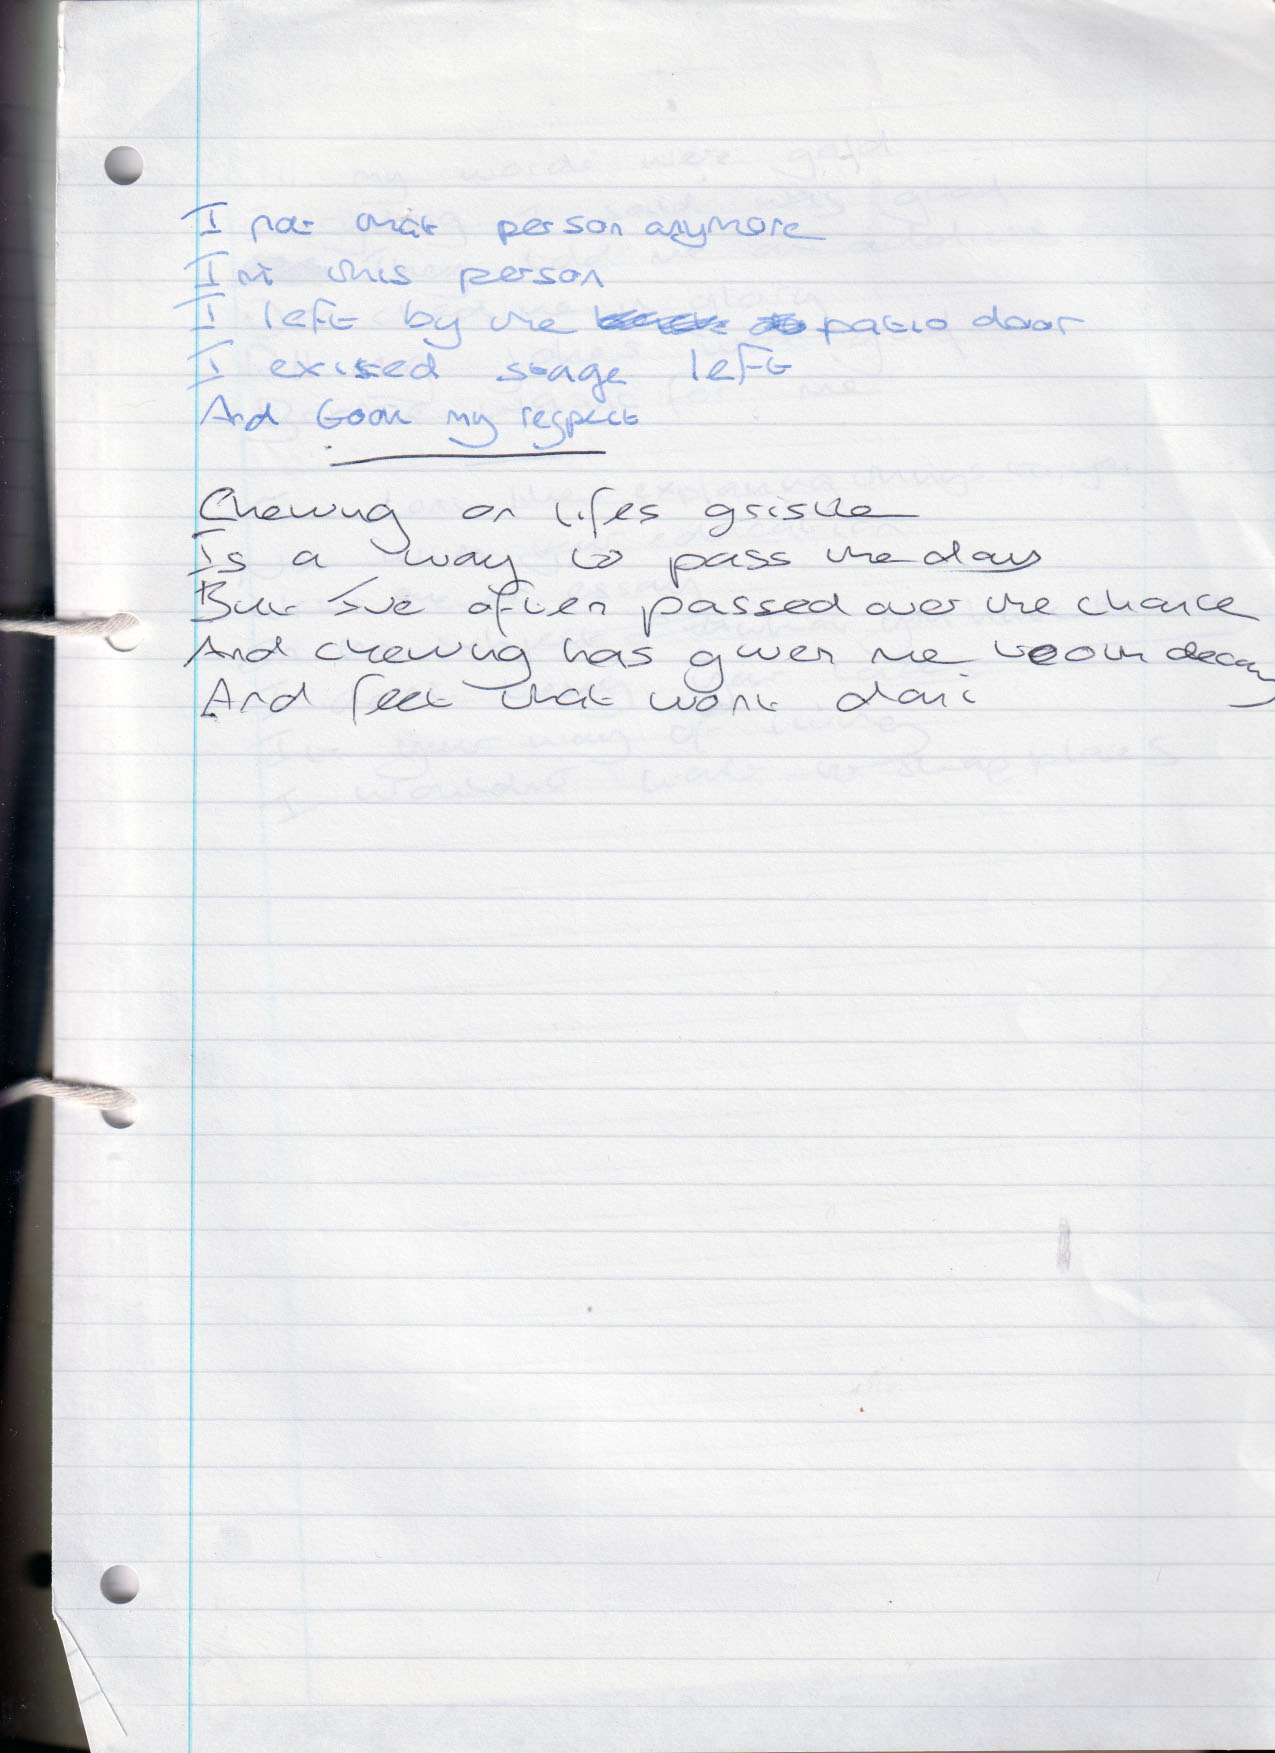 I not that person anymore
I'm this person
I left by the patio door
I exited stage left
And took my respect
Chewing on lifes gristle
Is a way to pass the day
But I've often passed over the chance
And chewing has given me tooth decay
And feet that wont